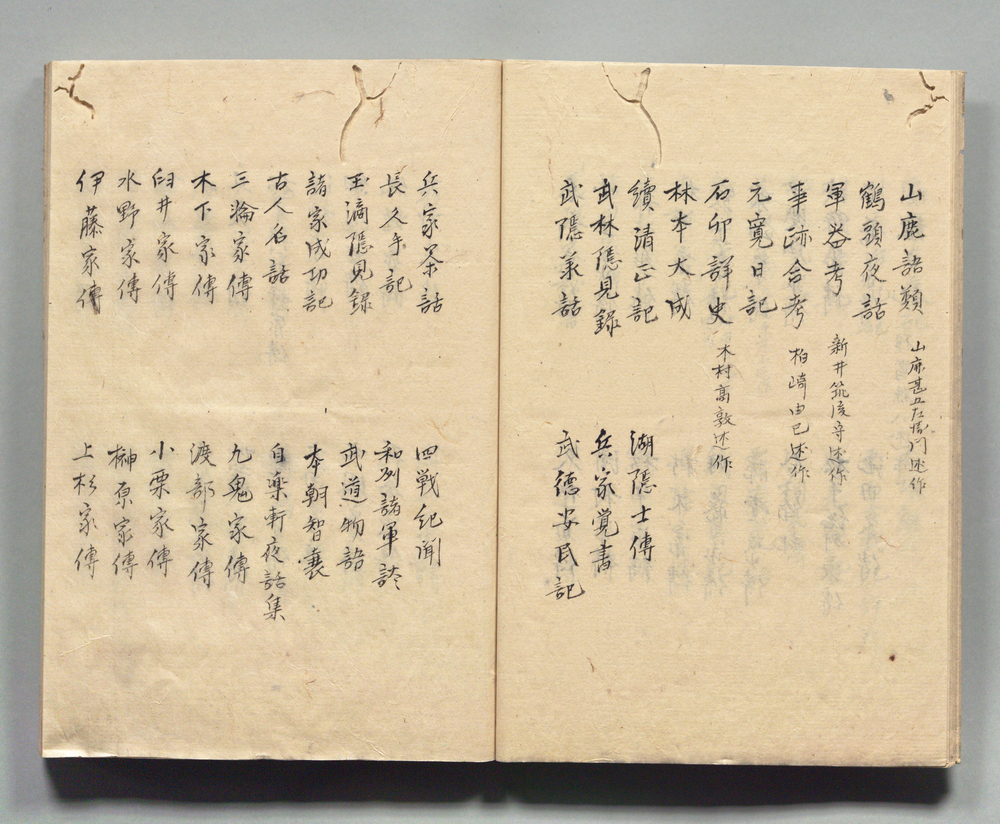 山鹿語類 山鹿甚五左衛門述作
鶴頭夜話
軍器考 新井筑後守述作
事跡合考 柏崎由巳述作
元寛日記
石卯詳史 木村高敦述作
林本大成
續清正記 湖隱士傳
武林隱見録 兵家覚書
武隱叢話 武德安民記
兵家茶話 四戦紀聞
長久手記 和州諸軍談
玉滴隱見録 武道物語
諸家成功記 本朝智嚢
古人名話 自楽軒夜話集
三淪家傳 九鬼家傳
木下家傳 渡部家傳
臼井家傳 小栗家傳
水野家傳 榊原家傳
伊藤家傳 上杉家傳